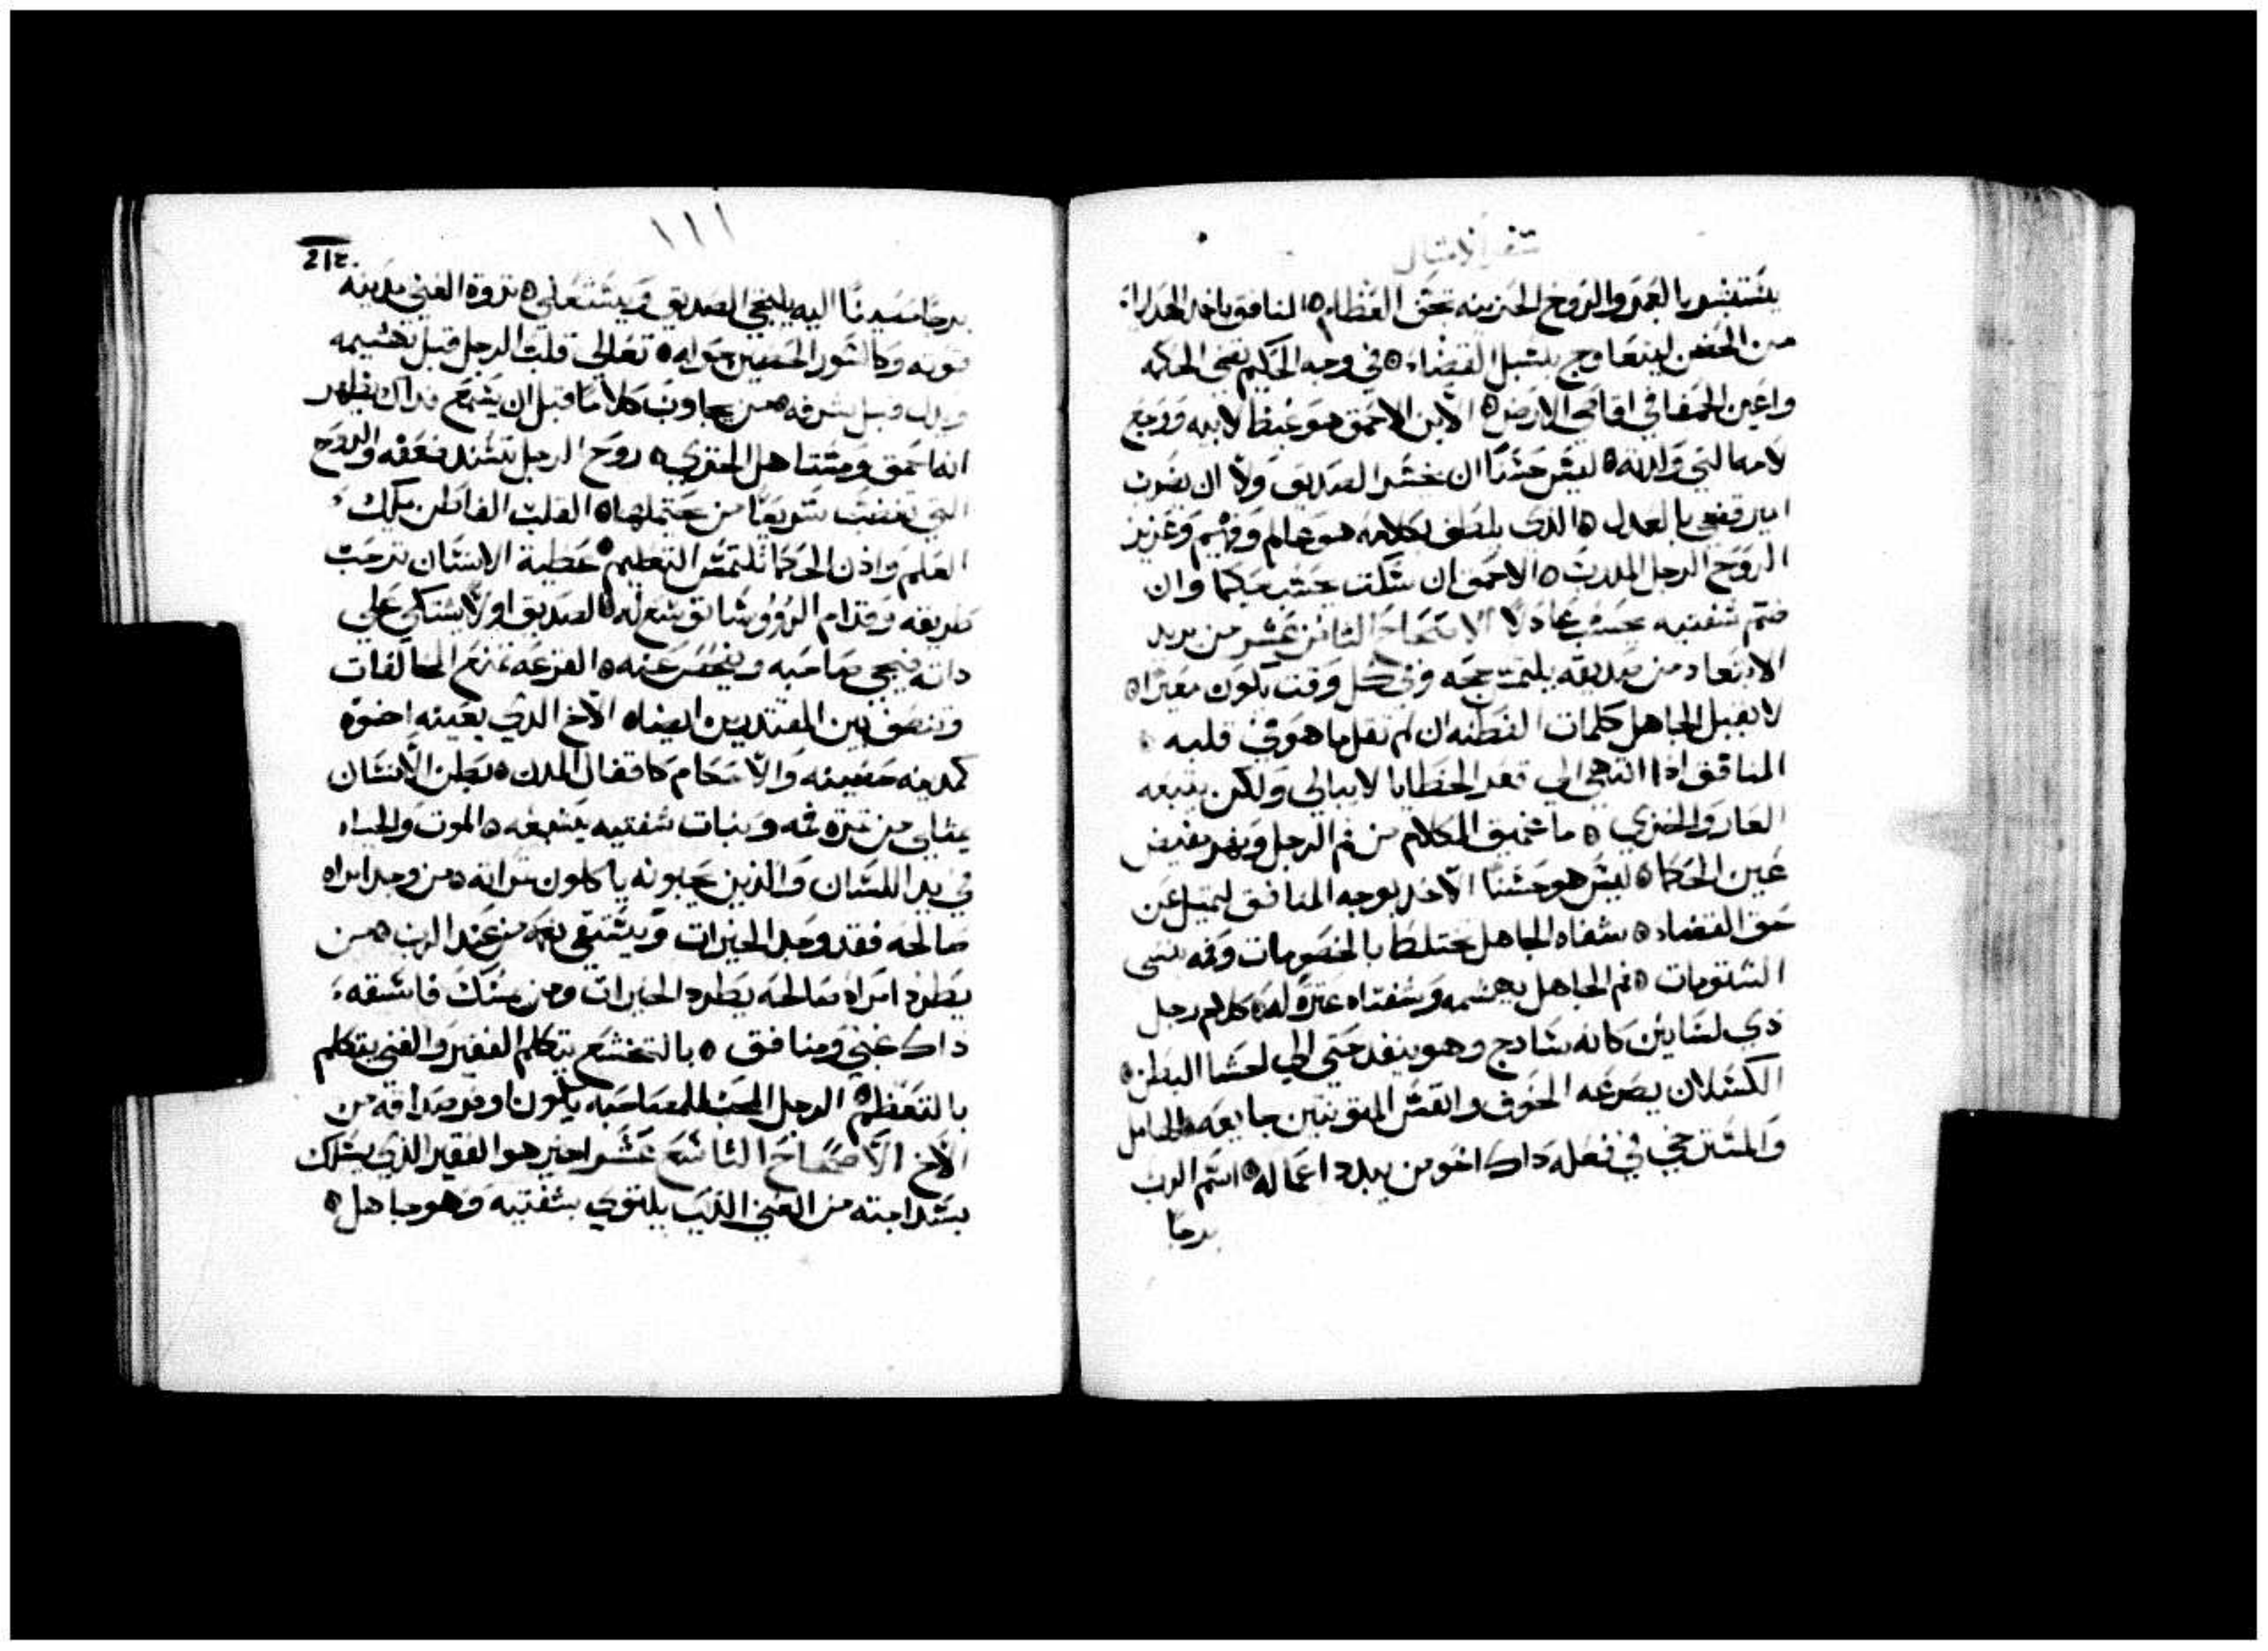 سفر الامثال
يستبشر بالعمر والروح الحزينه تجفف العظام ه المنافق ياخد الهدايا
من الحضن ليتعاوج بسبل القضاء ه في وجه الحكيم تضي الحكمه
واعين الحمقا في اقاصي الارض ه الابن الاحمق هو غيظ لابيه ووجع
لامه التي ولدته ه ليس حسنا ان يخسر الصديق ولا ان يضرب
امير قضي بالعدل ه الذي يلطف كلامه هو عالم وفهيم وعزيز
الروح الرجل المدرب ه الاحمق ان سكت يحسب حكيما وان
ضم شفتيه يحسب عاقلا الاصحاح الثامن عشر من يريد
الابتعاد من صديقه يلتمس حجه وفي كل وقت يكون معيرا ه
لا يقبل الجاهل كلمات الفطنه ان لم تقل ما هو في قلبه ه
المنافق ادا انتهي الي قعر الخطايا لا يبالي ولكن يتبعه
العار والخزي ه ما عميق الكلام من فم الرجل ونهر يفيض
عين الحكما ه ليس هو حسنا الاخد بوجه المنافق لتميل عن
حق القضاء ه شفاه الجاهل تختلط بالخصومات وفمه ينشي
الشتومات ه فم الجاهل يهشمه وشفتاه عثره له ه كلام رجل
دي لسانين كانه سادج وهو ينفد حتي الي احشا البطن ه
الكسلان يصرعه الخوف وانفس المتونثين جايعه ه الخامل
والمسترخي في فعله داك اخو من يبدد اعماله ه اسم الرب
برجا
١١١
212.
برجا حصينا اليه يلتجي الصديق ويستعلي ه ثروة الغني مدينه
قوته وكالسور الحصين حواليه ه تعالي قلب الرجل قبل تهشيمه
ويدل قبل شرفه ه من يجاوب كلاما قبل ان يسمع فداك يظهر
انه احمق ومستاهل الخزي ه روح الرجل تسند ضعفه والروح
التي تغضب سريعا من يحتملها ه القلب الفاطن يملك
العلم واذن الحكما تلتمس التعليم ه عطية الانسان ترحب
طريقه وقدام الروسا توسع له ه الصديق اولا يشتكي علي
داته فيجي صاحبه ويفحص عنه ه القرعه تمنع المخالفات
وتنصف بين المقتدرين ايضا ه الاخ الدي يعينه اخوه
كمدينه حصينه والاحكام كاقفال المدن ه بطن الانسان
يمتلي من ثمرة فمه ونبات شفتيه يشبعه ه الموت والحياه
في يد اللسان والذين يحبونه ياكلون ثمراته ه من وجد امراه
صالحه فقد وجد الخيرات ويستقي نعمه من عند الرب ه من
يطرد امراه صالحه يطرد الخيرات ومن يمسك فاسقه
داك غبي ومنافق ه بالتخشع يتكلم الفقير والغني يتكلم
بالتعظم ه الرجل المحب للمصاحبه يكون اوفر صداقه من
الاخ الاصحاح التاسع عشر اخير هو الفقير الذي يسلك
بسداجته من الغني الذي يلتوي بشفتيه وهو جاهل ه